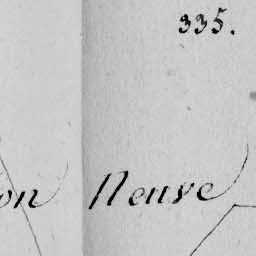 335.
on Neuve